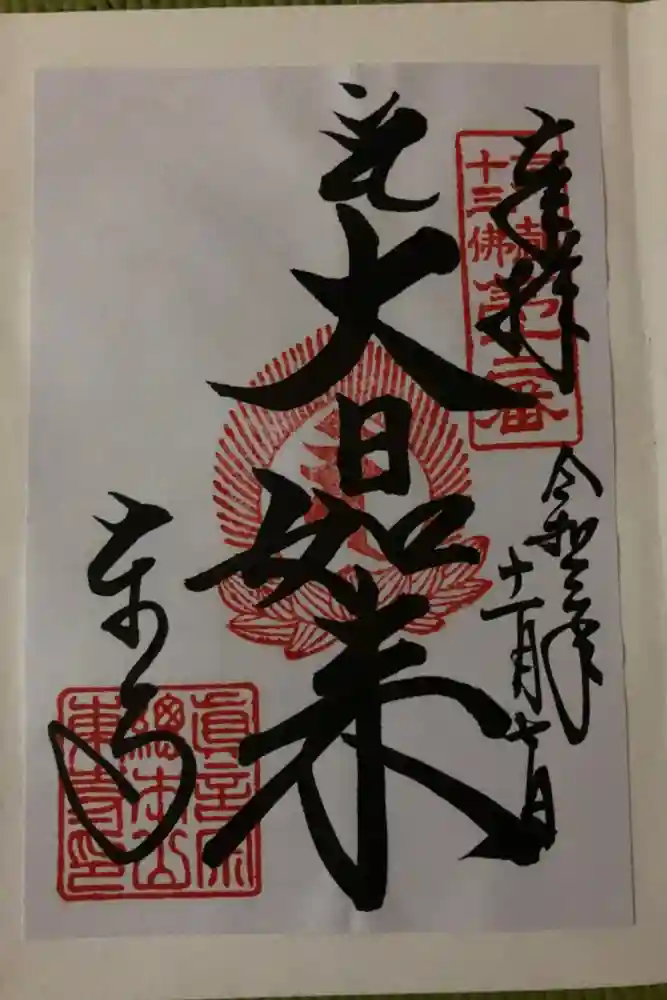 奉拝
京都
十三佛第十二番
令和三年
十一月七日
大日如来
東寺
真言宗
總本山
東寺印